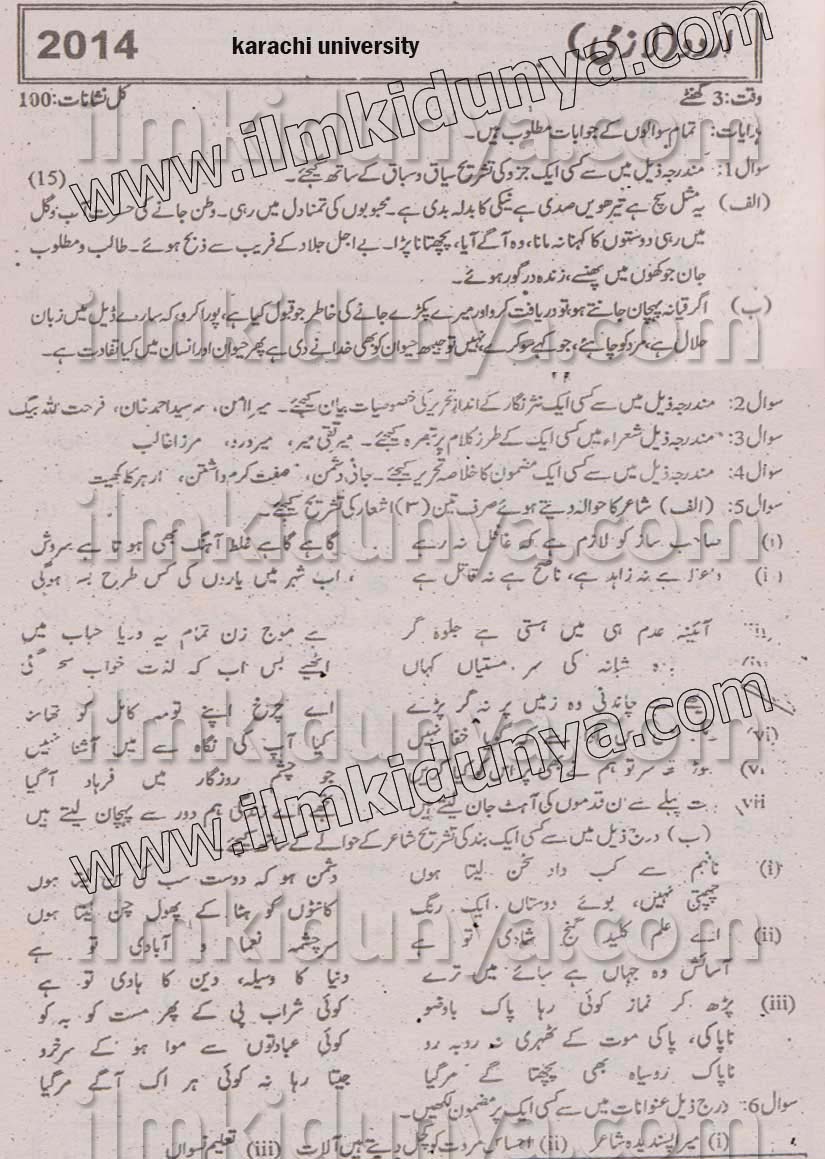 2014 karachi university اردو (لازمی)
وقت: 3 گھنٹے کل نشانات: 100
ہدایات: تمام سوالوں کے جوابات مطلوب ہیں۔
سوال 1: مندرجہ ذیل میں سے کسی ایک جزو کی تشریح سیاق و سباق کے ساتھ کیجئے۔ (15)
(الف) یہ مثل سچ ہے تیرھویں صدی ہے نیکی کا بدلہ بدی ہے۔ محبوبوں کی تمنا دل میں رہی۔ وطن جانے کی حسرت آب و گل
میں رہی دوستوں کا کہنا نہ مانا، وہ آگے آیا، پچھتانا پڑا۔ بے اجل جلاد کے فریب سے ذبح ہوئے۔ طالب و مطلوب
جان جوکھوں میں پھنسے، زندہ درگور ہوئے۔
(ب) اگر قیافہ پہچان جانتے ہو، تو دریافت کرو اور میرے پکڑے جانے کی خاطر جو قبول کیا ہے، پورا کرو، کہ سارے ڈیل میں زبان
حلال ہے، مرد کو چاہئے، جو کہے سو کرے نہیں تو جیبھ حیوان کو بھی خدا نے دی ہے پھر حیوان اور انسان میں کیا تفاوت ہے۔
سوال 2: مندرجہ ذیل میں سے کسی ایک نثر نگار کے انداز تحریر کی خصوصیات بیان کیجئے۔ میر امن، سر سید احمد خان، فرحت اللہ بیگ
سوال 3: مندرجہ ذیل شعراء میں کسی ایک کے طرز کلام پر تبصرہ کیجئے۔ میر تقی میر، میر درد، مرزا غالب
سوال 4: مندرجہ ذیل میں سے کسی ایک مضمون کا خلاصہ تحریر کیجئے۔ جانی دشمن، صفت کرم داشتن، ارہر کا کھیت
سوال 5: (الف) شاعر کا حوالہ دیتے ہوئے صرف تین (۳) اشعار کی تشریح کیجئے۔
(i) صاحب ساز کو لازم ہے کہ غافل نہ رہے گاہے گاہے غلط آہنگ بھی ہوتا ہے سروش
واعظ ہے نہ زاہد ہے، ناصح ہے نہ قاتل ہے اب شہر میں یاروں کی کس طرح بسر ہوگی
آئینہ عدم ہی میں ہستی ہے جلوہ گر ہے موج زن تمام یہ دریا حباب میں
شبانہ کی سر مستیاں کہاں اٹھیے بس اب کہ لذت خواب سحر گئی
چاندنی وہ زمیں پر نہ گر پڑے اے چرخ اپنے تو مہ کامل کو تھامنا
(vi) خفا نہیں کیا آپ کی نگاہ سے میں آشنا نہیں
سر تو ہم نے بھی پر اس کو جو چشم روزگار میں فرہاد آگیا
vii پہلے سے ان قدموں کی آہٹ جان لیتے ہیں زندگی ہم دور سے پہچان لیتے ہیں
(ب) درج ذیل میں سے کسی ایک بند کی تشریح شاعر کے حوالے کے ساتھ کیجئے۔
(i) نافہم سے کب داد سخن لیتا ہوں دشمن ہو کہ دوست سب کی سن لیتا ہوں
چھپتی نہیں، بوئے دوستاں یک رنگ کانٹوں کو ہٹا کے پھول چن لیتا ہوں
(ii) اے علم کلید گنج شادی تو ہے سرچشمہ نعما و آبادی تو ہے
آسائش دو جہاں ہے سائے میں ترے دنیا کا وسیلہ، دین کا ہادی تو ہے
(iii) پڑھ کر نماز کوئی رہا پاک باوضو کوئی شراب پی کے پھر مست کو بہ کو
ناپاکی، پاکی موت کے ٹھہری نہ رو بہ رو کوئی عبادتوں سے موا ہو کے سرخرو
ناپاک روسیاہ بھی پچھتا کے مرگیا جیتا رہا نہ کوئی ہر اک آکے مرگیا
سوال 6: درج ذیل عنوانات میں سے کسی ایک پر مضمون لکھیں۔
(i) میرا پسندیدہ شاعر (ii) احساس مروت کو کچل دیتے ہیں آلات (iii) تعلیم نسواں
www.ilmkidunya.com
www.ilmkidunya.com
ilmkidunya.com
ilmkidunya.com
ilmkidunya.com
ilmkidunya.com